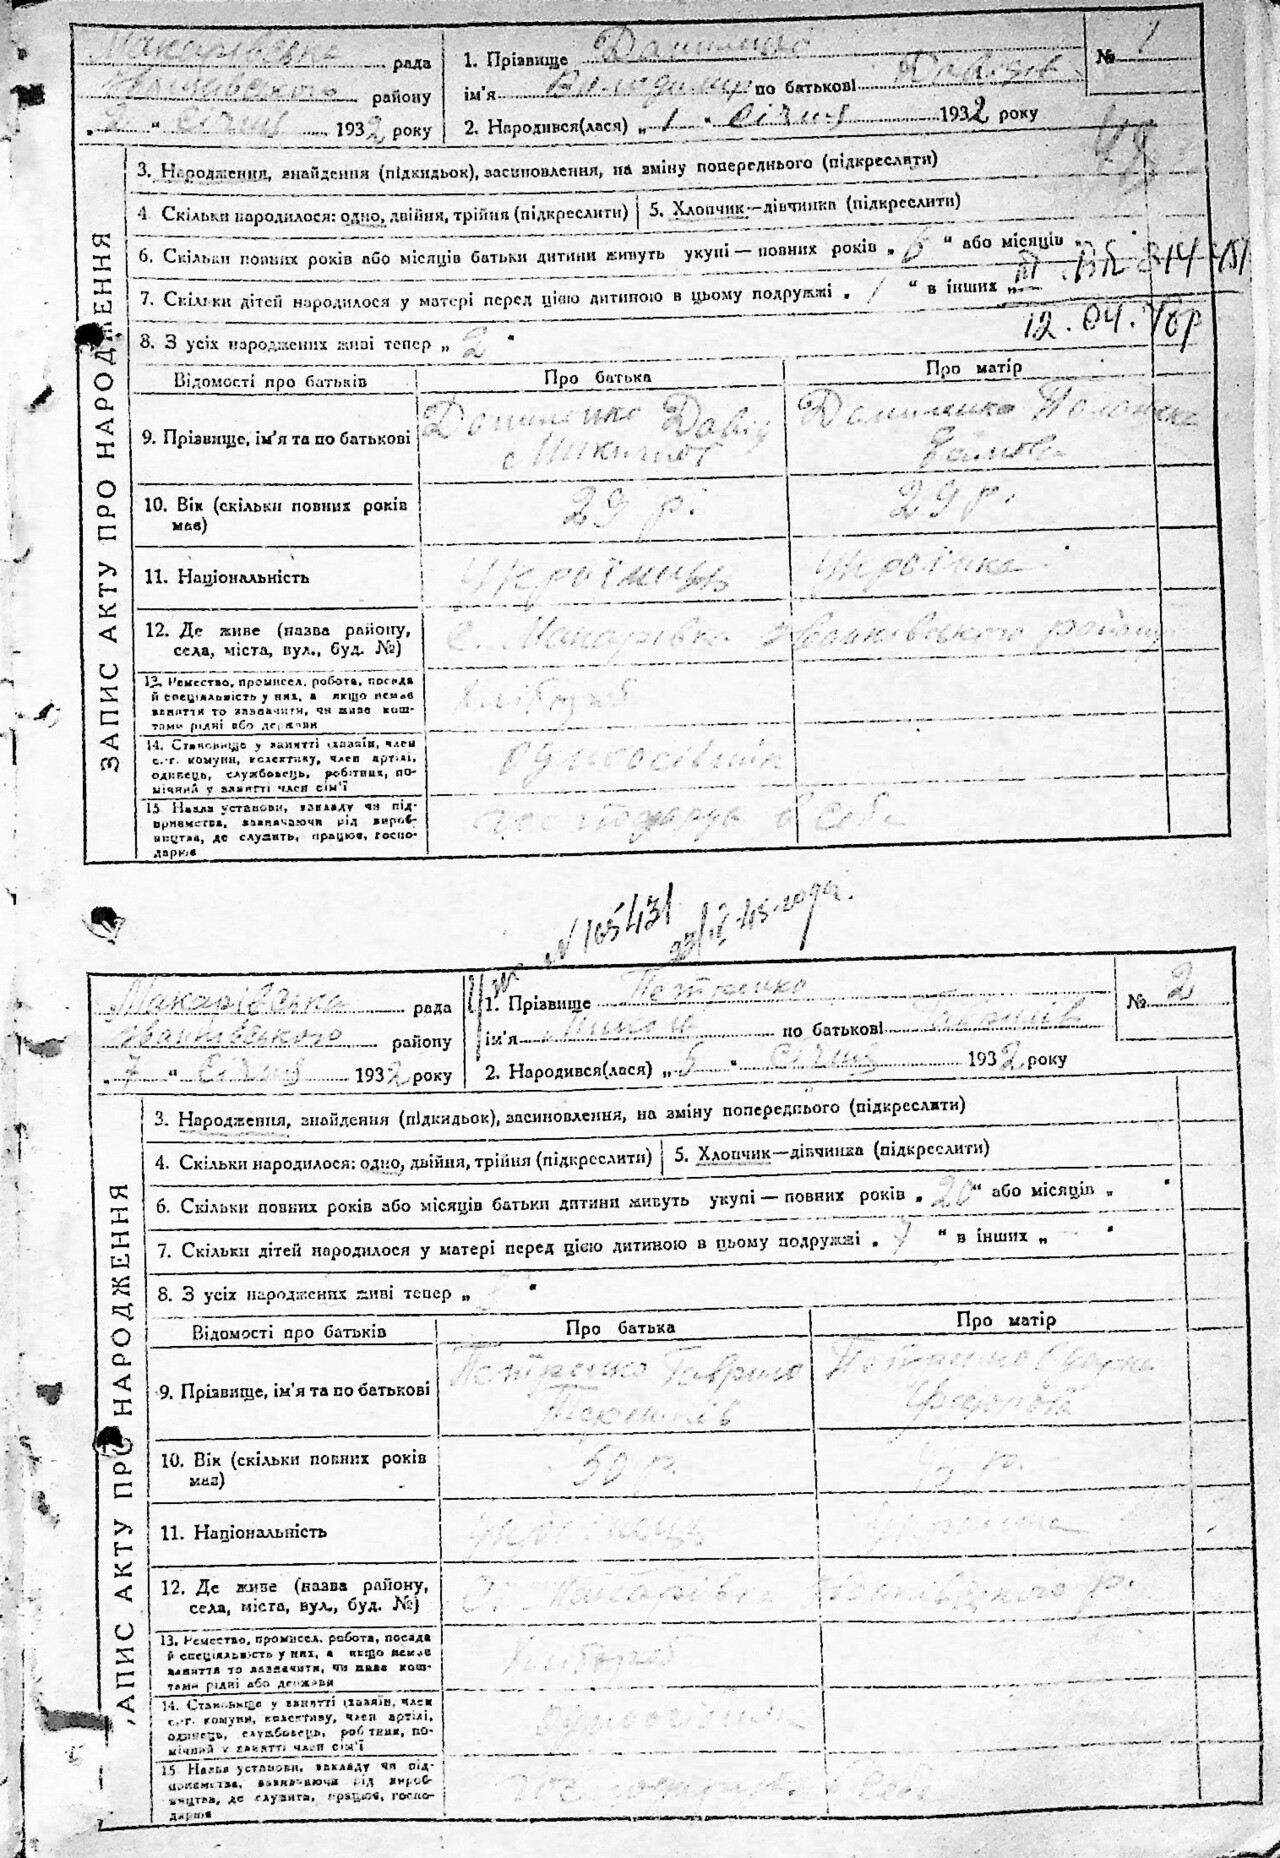 Макарівська рада
Іванківського району
„ 2 “ Січня 1932 року
1. Прізвище Даниленко
ім'я Володимир по батькові Давидов.
2. Народився(лася) „ 1 “ Січня 1932 року
№ 1
48
ЗАПИС АКТУ ПРО НАРОДЖЕННЯ
3. Народження, знайдення (підкидьок), засиновлення, на зміну попереднього (підкреслити)
4. Скільки народилося: одно, двійня, трійня (підкреслити)
5. Хлопчик—дівчинка (підкреслити)
6. Скільки повних років або місяців батьки дитини живуть укупі — повних років „ 6 “ або місяців „
7. Скільки дітей народилося у матері перед цією дитиною в цьому подружжі „ 1 “ в інших „ —
12.04.
8. З усіх народжених живі тепер „ 2 “
Відомості про батьків
Про батька
Про матір
9. Прізвище, ім'я та по батькові
Даниленко Давид
Даниленко
10. Вік (скільки повних років має)
29 р.
29 р.
11. Національність
Українець
Українка
12. Де живе (назва району, села, міста, вул., буд. №)
С. Макарівка Іванківського району
13. Ремество, промисел. робота, посада й спеціяльність у них, а якщо немає заняття то зазначити, чи живе коштами рідні або держави
Хлібороб
14. Становище у занятті (хазяїн, член с.-г. комуни, колективу, член артілі, одинець, службовець, робітник, помічний у занятті член сім'ї
Одноосібник
15. Назва установи, закладу чи підприємства, зазначаючи рід виробництва, де служить, працює, господарює
господарує в себе
N 165431
45 года.
Макарівська рада
Іванківського району
„ 7 “ Січня 1932 року
1. Прізвище Петренко
ім'я Микола по батькові Гаврилів
2. Народився(лася) „ 6 “ Січня 1932 року
№ 2
ЗАПИС АКТУ ПРО НАРОДЖЕННЯ
3. Народження, знайдення (підкидьок), засиновлення, на зміну попереднього (підкреслити)
4. Скільки народилося: одно, двійня, трійня (підкреслити)
5. Хлопчик—дівчинка (підкреслити)
6. Скільки повних років або місяців батьки дитини живуть укупі — повних років „ 20 “ або місяців „ “
7. Скільки дітей народилося у матері перед цією дитиною в цьому подружжі „ 7 “ в інших „ — “
8. З усіх народжених живі тепер „ “
Відомості про батьків
Про батька
Про матір
9. Прізвище, ім'я та по батькові
Петренко Гаврило
Петренко
10. Вік (скільки повних років має)
50 р.
р.
11. Національність
Українець
Українка
12. Де живе (назва району, села, міста, вул., буд. №)
С. Макарівка Іванківського р.
13. Ремество, промисел. робота, посада й спеціяльність у них, а якщо немає заняття то зазначити, чи живе коштами рідні або держави
Хлібороб
14. Становище у занятті (хазяїн, член с.-г. комуни, колективу, член артілі, одинець, службовець, робітник, помічний у занятті член сім'ї
Одноосібник
15. Назва установи, закладу чи підприємства, зазначаючи рід виробництва, де служить, працює, господарює